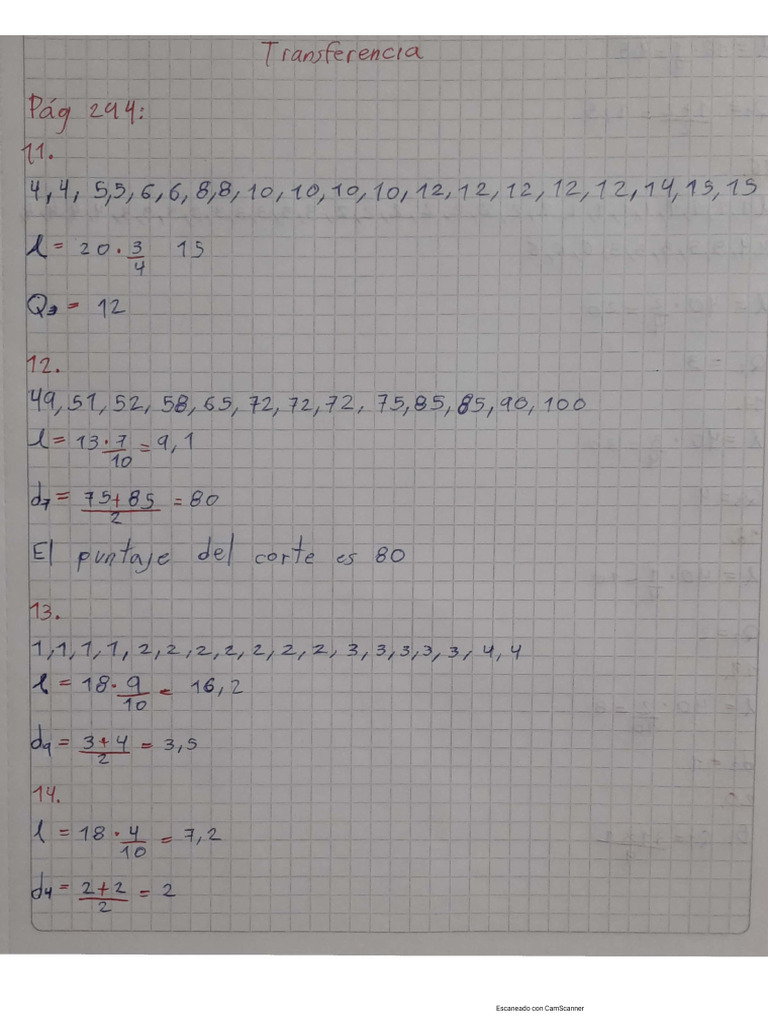 Transferencia
Pág 294:
11.
4,4, 5,5,6,6,8,8,10,10,10,10,12,12,12,12,12,14,15,15
l = 20 · 3/4 15
Q3 = 12
12.
49,51,52,58,65,72,72,72,75,85,85,90,100
l = 13 · 7/10 = 9,1
d7 = 75+85/2 = 80
El puntaje del corte es 80
13.
1,1,1,1,2,2,2,2,2,2,2,3,3,3,3,3,4,4
l = 18 · 9/10 = 16,2
d9 = 3+4/2 = 3,5
14.
l = 18 · 4/10 = 7,2
d4 = 2+2/2 = 2
Escaneado con CamScanner